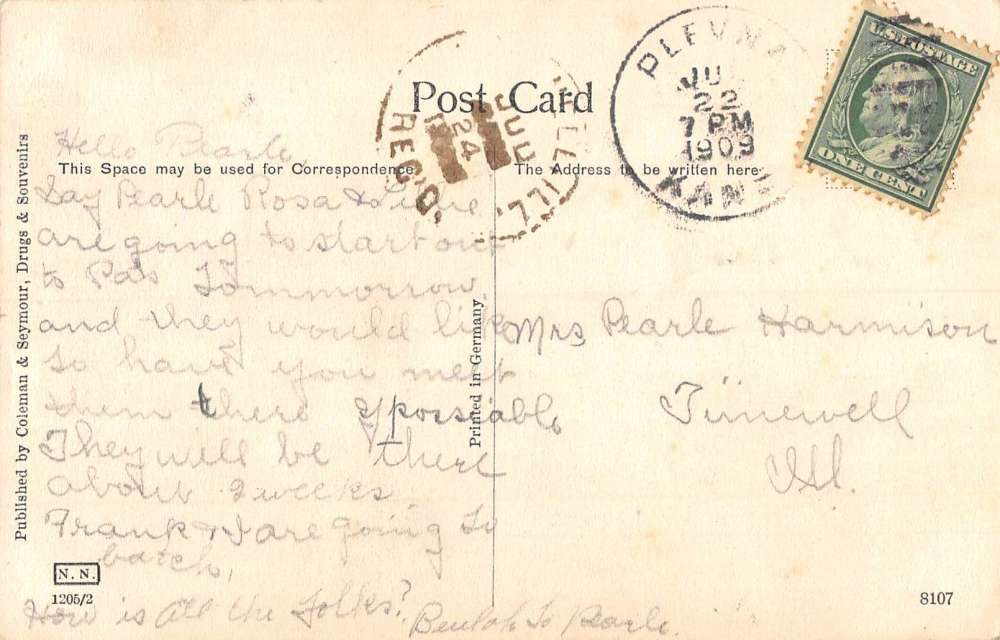 Post Card
This Space may be used for Correspondence
The Address to be written here
Hello Pearle
Say Pearle Rosa &
are going to start out
to Pa's Tommorrow
and they would like
to have you meet
them there if possiable
They will be there
about 2 weeks
Frank & I are going to
batch.
How is all the folks?
Beulah to Pearle.
Mrs Pearle Harmison
Timewell
Ill.
PLEVNA
JU
22
7 PM
1909
KANS
JUN
24
REC'D.
ILL.
U.S. POSTAGE
ONE CENT
Published by Coleman & Seymour, Drugs & Souvenirs
Printed in Germany
N. N.
1205/2
8107